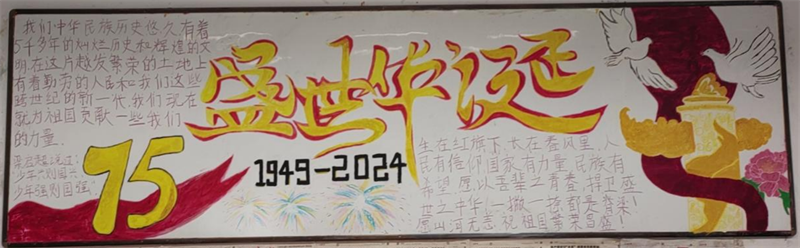 我们中华民族历史悠久,有着
5千多年的灿烂历史和辉煌的文
明,在这片越发繁荣的土地上
有着勤劳的人民和我们这些
跨世纪的新一代,我们现在
就为祖国贡献一些我们
的力量.
梁启超说过:
少年兴则国兴,
少年强则国强.
75
盛世华诞
1949-2024
生在红旗下,长在春风里,人
民有信仰国家有力量,民族有
希望.愿以吾辈之青春,捍卫盛
世之中华!一撇一捺都是脊梁!
愿山河无恙,祝祖国繁荣昌盛!